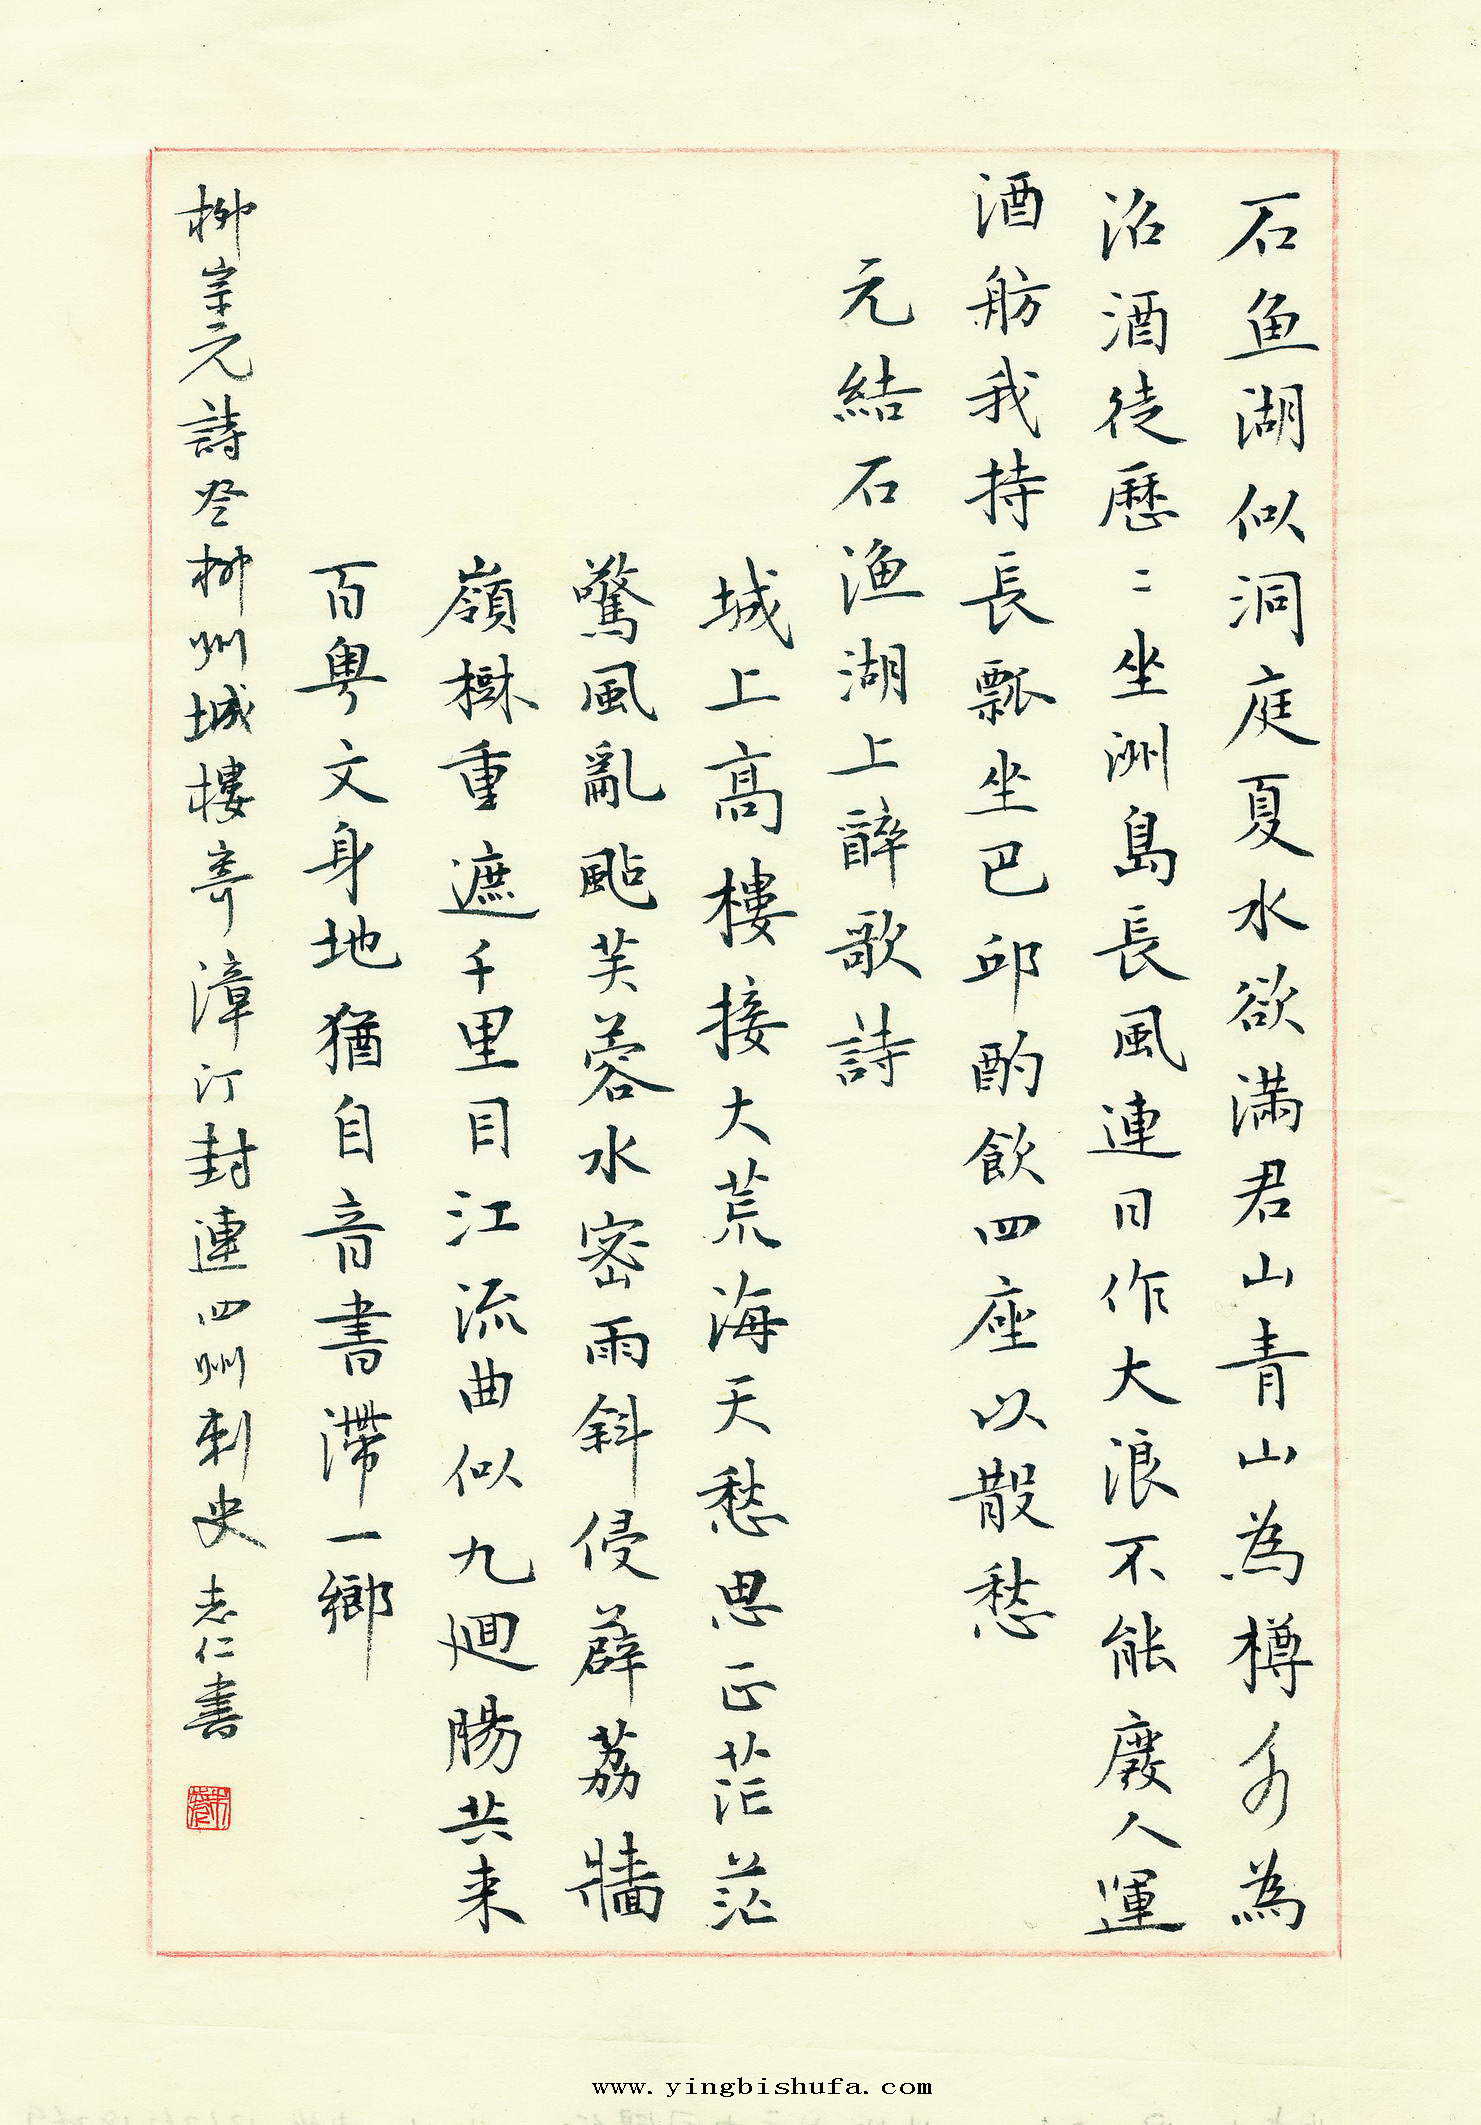 石鱼湖似洞庭夏水欲满君山青山為樽水為
沼酒徒歷〻坐洲島長風連日作大浪不能廢人運
酒舫我持長瓢坐巴邱酌飲四座以散愁
元結石渔湖上醉歌詩
城上高樓接大荒海天愁思正茫茫
驚風亂颭芙蓉水密雨斜侵薜荔牆
嶺樹重遮千里目江流曲似九迴腸共来
百粤文身地猶自音書滯一鄉
柳宗元詩登柳州城樓寄漳汀封連四州刺史 志仁書
www.yingbishufa.com